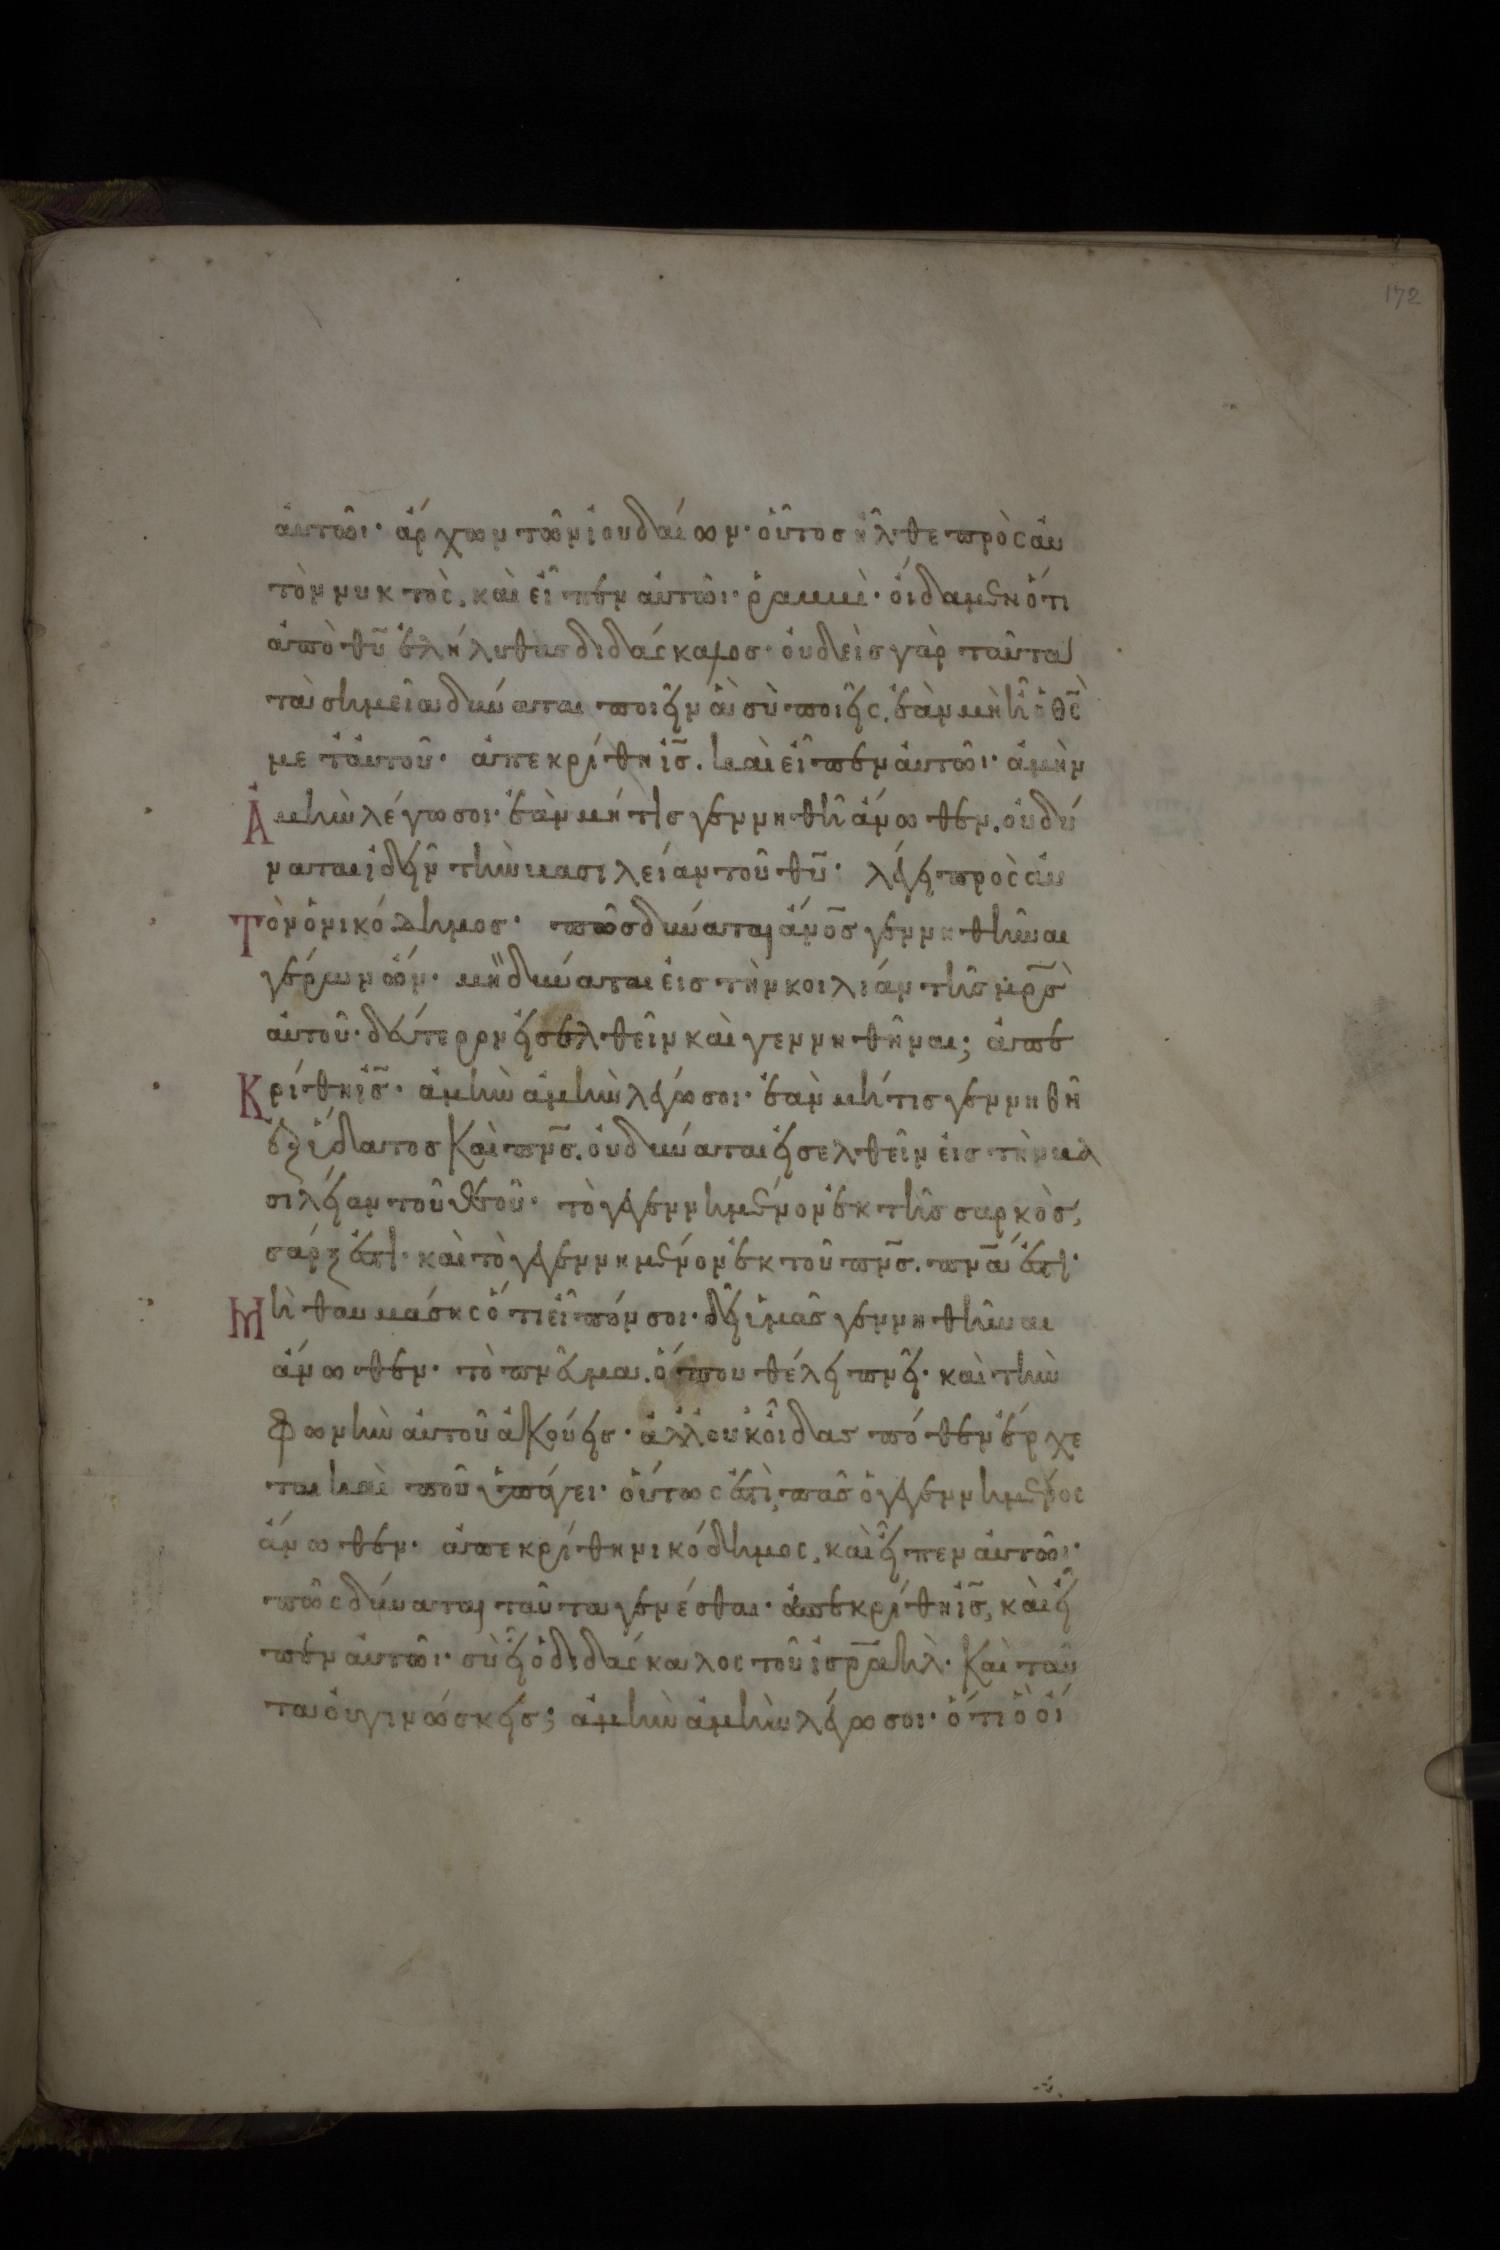 172
αὐτῶι· ἄρχων τῶν ἰουδαίων· οὗτος ἦλθε πρὸς αὐ
τὸν νυκτὸς, καὶ εἶπεν αὐτῶι· ῥαββὶ· οἴδαμεν ὅτι
ἀπὸ θ̅υ̅ ἐλήλυθας διδάσκαλος· οὐδεὶς γὰρ ταῦτα
τὰ σημεῖα δύναται ποιεῖν ἃ σὺ ποιεῖς, ἐὰν μὴ ἦ ὁ θ̅ς̅
μετ' αὐτοῦ· ἀπεκρίθη ι̅ς̅. καὶ εἶπεν αὐτῶι· ἀμὴν
ἀμὴν λέγω σοι· ἐὰν μή τις γεννηθῆ ἄνωθεν, οὐ δύ
ναται ἰδεῖν τὴν βασιλείαν τοῦ θ̅υ̅· λέγει πρὸς αὐ
τὸν ὁ νικόδημος· πῶς δύναται α̅ν̅ο̅ς̅ γεννηθῆναι
γέρων ὤν· μὴ δύναται εἰς τὴν κοιλίαν τῆς μ̅ρ̅ς̅
αὐτοῦ· δεύτερον εἰσελθεῖν καὶ γεννηθῆναι; ἀπε
κρίθη ι̅ς̅· ἀμὴν ἀμὴν λέγω σοι· ἐὰν μή τις γεννηθῆ
ἐξ ὕδατος καὶ π̅ν̅ς̅. οὐ δύναται εἰσελθεῖν εἰς τὴν βα
σιλείαν τοῦ θεοῦ· τὸ γεγεννημένον ἐκ τῆς σαρκὸς,
σάρξ ἐστι· καὶ τὸ γεγεννημένον ἐκ τοῦ π̅ν̅ς̅. π̅ν̅α̅ ἐστι·
μὴ θαυμάσης ὅτι εἶπόν σοι· δεῖ ὑμᾶς γεννηθῆναι
ἄνωθεν· τὸ πνεῦμα. ὅπου θέλει πνεῖ· καὶ τὴν
φωνὴν αὐτοῦ ἀκούεις· ἀλλ' οὐκ οἶδας πόθεν ἔρχε
ται καὶ ποῦ ὑπάγει· οὕτως ἐστὶ, πᾶς ὁ γεγεννημένος
ἄνωθεν· ἀπεκρίθη νικόδημος, καὶ εἶπεν αὐτῶι·
πῶς δύναται ταῦτα γενέσθαι· ἀπεκρίθη ι̅ς̅, καὶ εἶ
πεν αὐτῶι· σὺ εἶ ὁ διδάσκαλος τοῦ ἰσραὴλ· καὶ ταῦ
τα οὐ γινώσκεις; ἀμὴν ἀμὴν λέγω σοι· ὅτι ὃ οἴ